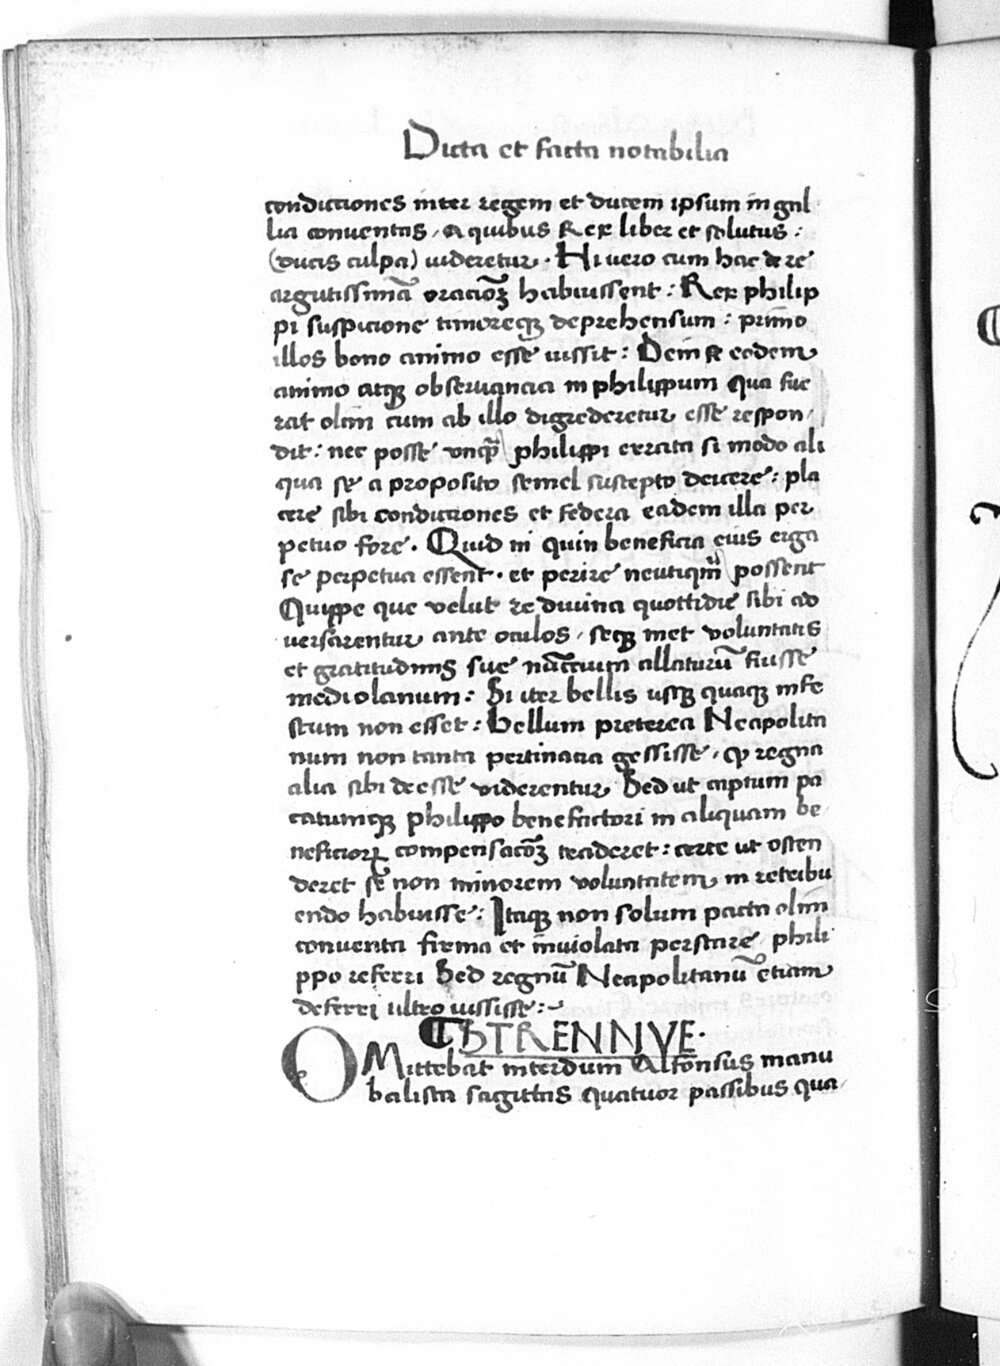 Dicta et facta notabilia
condictiones inter regem et ducem ipsum in gal
lia conuentas, a quibus Rex liber et solutus:
(ducis culpa) uideretur. Hi uero cum hac de re
argutissimā oracioȝ habuissent: Rex philip
pi suspicione timoreqȝ deprehensum: primo
illos bono animo esse iussit: Dein se eodem
animo atqȝ obseruancia in philippum qua fue
rat olim cum ab illo digrederetur esse respon
dit: nec posse vnqȝ philippi errata si modo ali
qua se a proposito semel suscepto deicere: pla
cere sibi condictiones et federa eadem illa per
petuo fore. Quid ni quin beneficia eius erga
se perpetua essent. et perire neutiqȝ possent
Quippe que velut re diuina quottidie sibi ad
uersarentur ante oculos, seqȝ met voluntatis
et gratitudinis sue nūccium allaturū fuisse
mediolanum: Si iter bellis usqȝ quaqȝ infe
stum non esset: bellum preterea Neapolita
num non tanta pertinacia gessisse, qȝ regna
alia sibi deesse viderentur Sed ut captum pa
catumqȝ philippo benefactori in aliquam be
neficiorꝝ compensacōȝ traderet: certe ut osten
deret se non minorem voluntatem in retribu
endo habuisse: Itaqȝ non solum pacta olim
conuenta firma et inuiolata perstare phili
ppo referri Sed regnū Neapolitanū etiam
deferri ultro iussisse:
STRENNVE.
OMittebat interdum Alfonsus manu
balista sagittas quatuor passibus qua